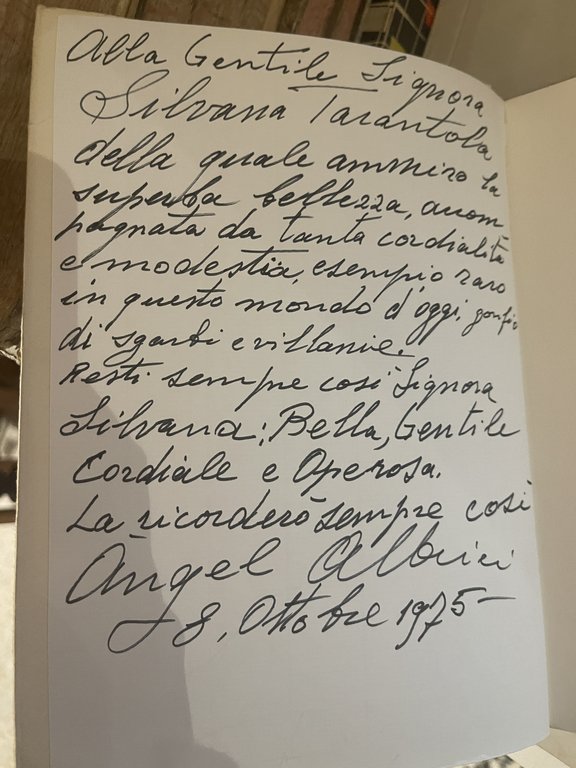 Alla Gentile Signora
Silvana Tarantola
della quale ammiro la
superba bellezza, accom
pagnata da tanta cordialità
e modestia, esempio raro
in questo mondo d'oggi, gonfio
di sgarbi e villanie.
Resti sempre così Signora
Silvana: Bella, Gentile
Cordiale e Operosa.
La ricorderò sempre così
Angel
8, Ottobre 1975